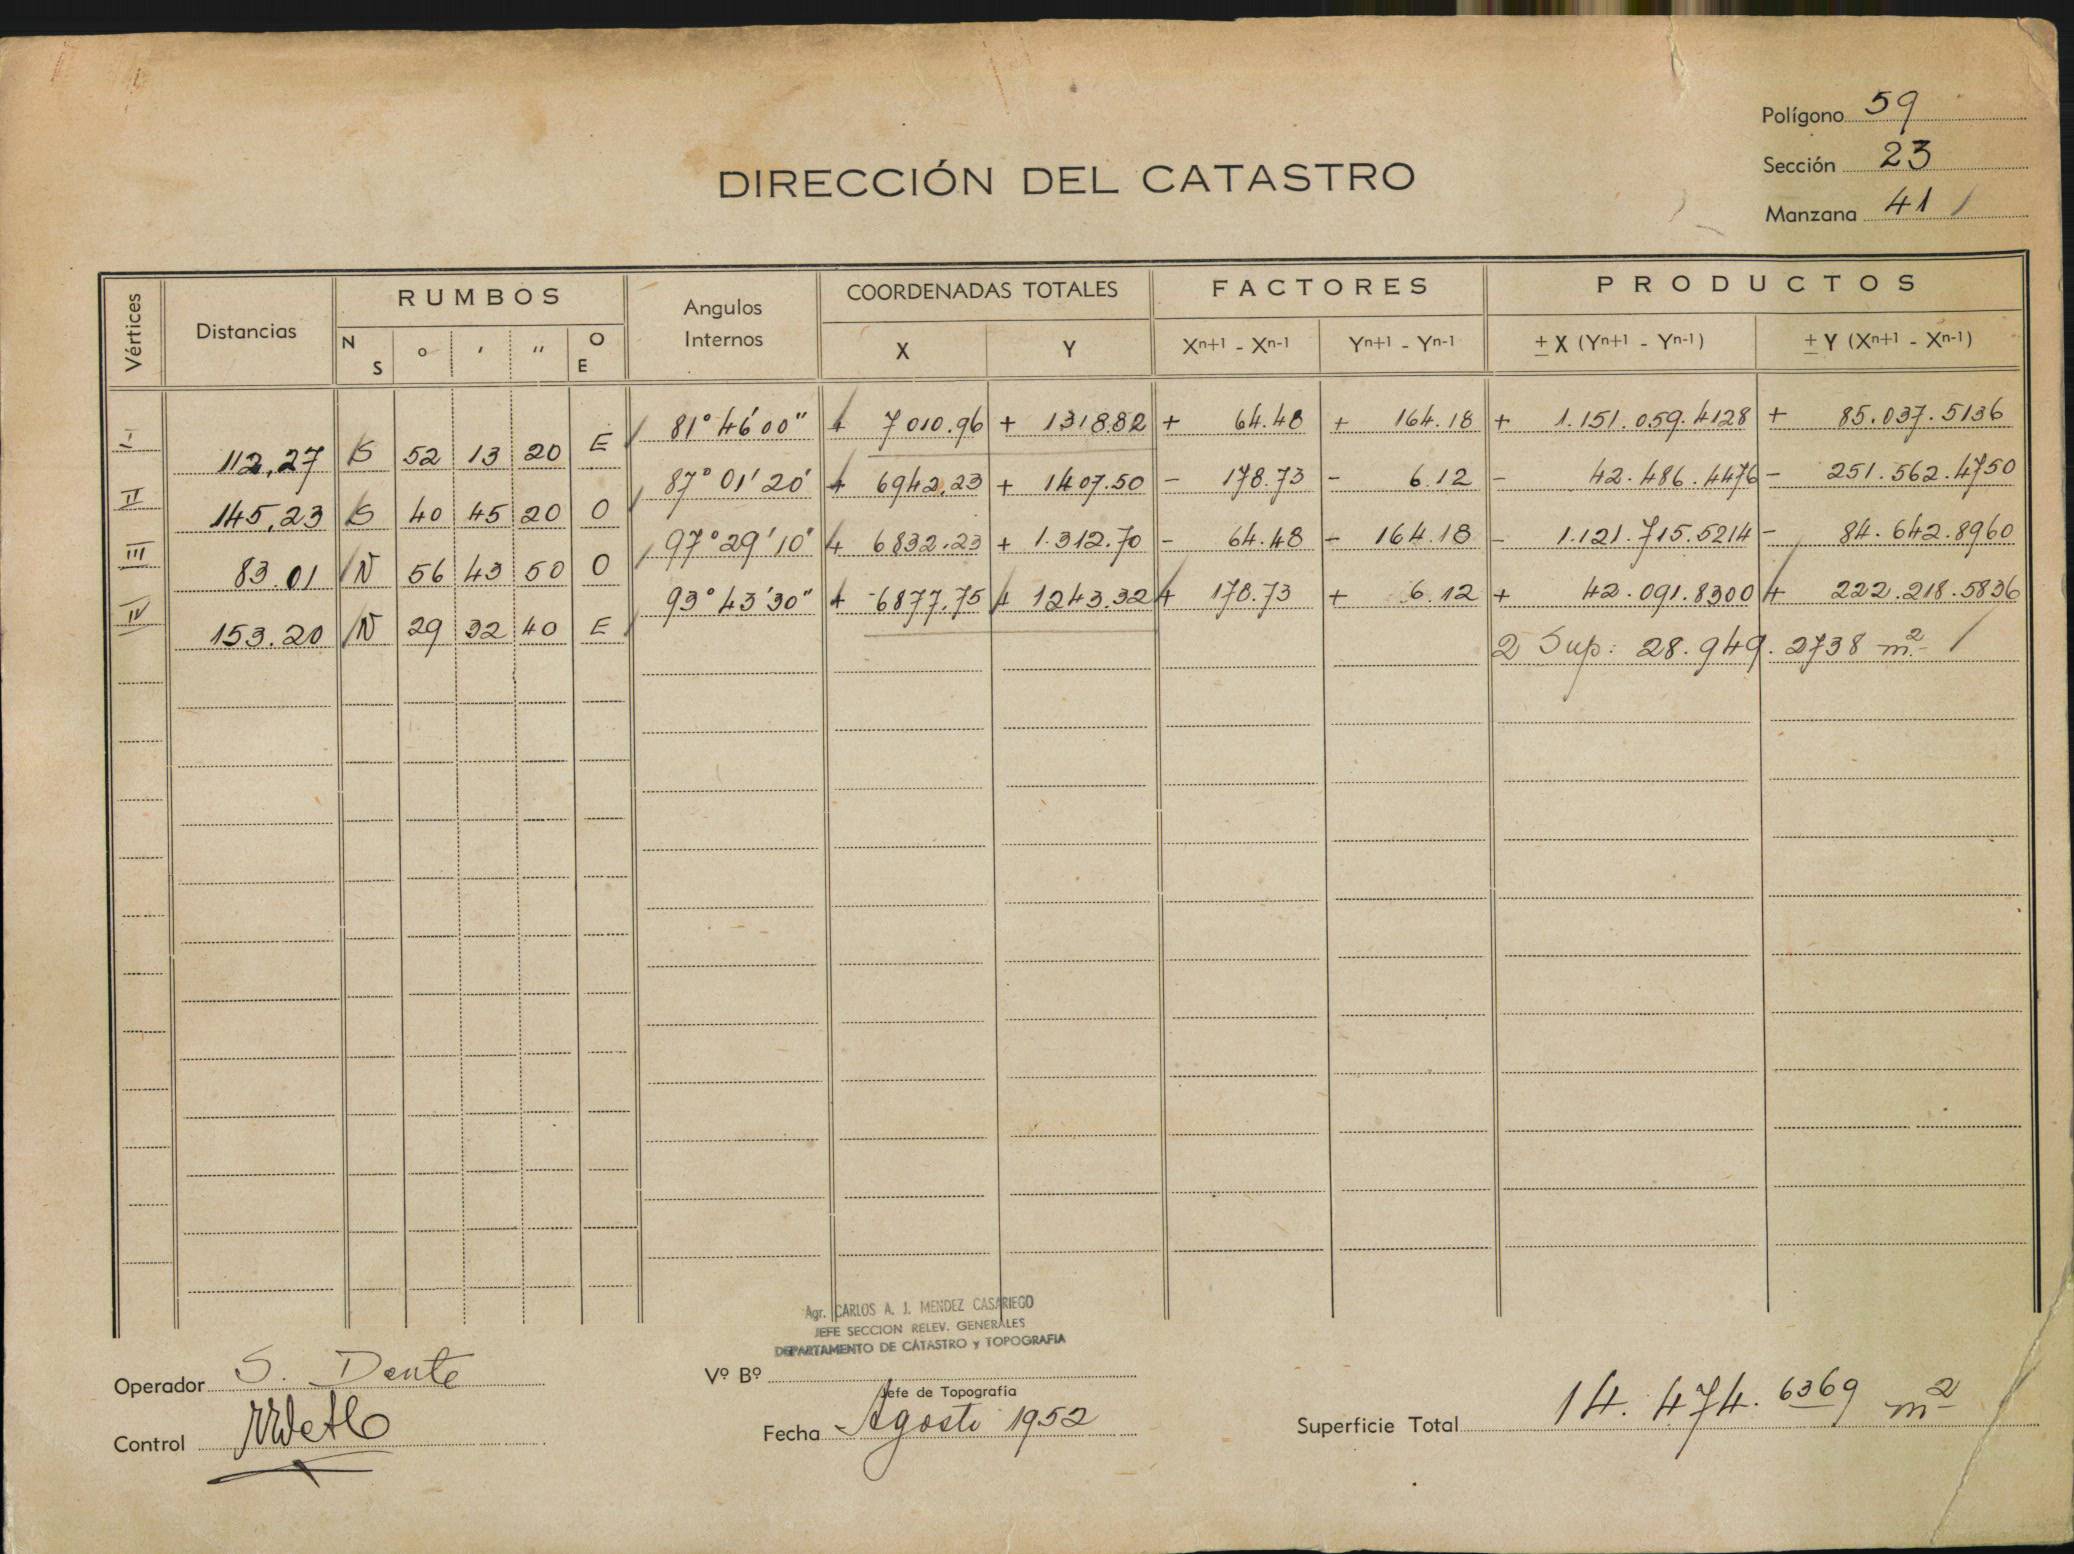 Polígono 59
Sección 23
Manzana 41
DIRECCIÓN DEL CATASTRO
Vértices Distancias RUMBOS Angulos Internos COORDENADAS TOTALES FACTORES PRODUCTOS
N S o ' '' O E X Y Xn+1 - Xn-1 Yn+1 - Yn-1 ± X (Yn+1 - Yn-1) ± Y (Xn+1 - Xn-1)
I 81° 46' 00" + 7010.96 + 1318.82 + 64.48 + 164.18 + 1.151.059.4128 + 85.037.5136
112,27 S 52 13 20 E
II 87° 01' 20" + 6942.23 + 1407.50 - 178.73 - 6.12 - 42.486.4476 - 251.562.4750
145,23 S 40 45 20 O
III 97° 29' 10" + 6832.23 + 1.312.70 - 64.48 - 164.18 - 1.121.715.5214 - 84.642.8960
83.01 N 56 43 50 O
IV 93° 43' 30" + 6877.75 + 1243.32 + 178.73 + 6.12 + 42.091.8300 + 222.218.5836
153.20 N 29 32 40 E
2 Sup: 28.949.2738 m2
Agr. CARLOS A. J. MENDEZ CASARIEGO
JEFE SECCION RELEV. GENERALES
DEPARTAMENTO DE CATASTRO y TOPOGRAFIA
Operador S. Dente
Vº Bº
Jefe de Topografía
Control
Fecha Agosto 1952
Superficie Total 14.474.6369 m2